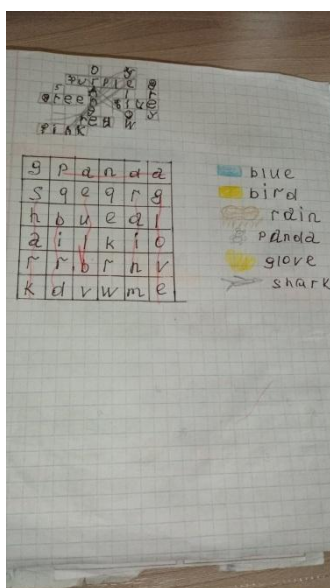 purple
green
red
pink
g p a n d a
s q e q r g
h b u e a l
a i l k i o
r r b r n v
k d v w m e
blue
bird
rain
panda
glove
shark